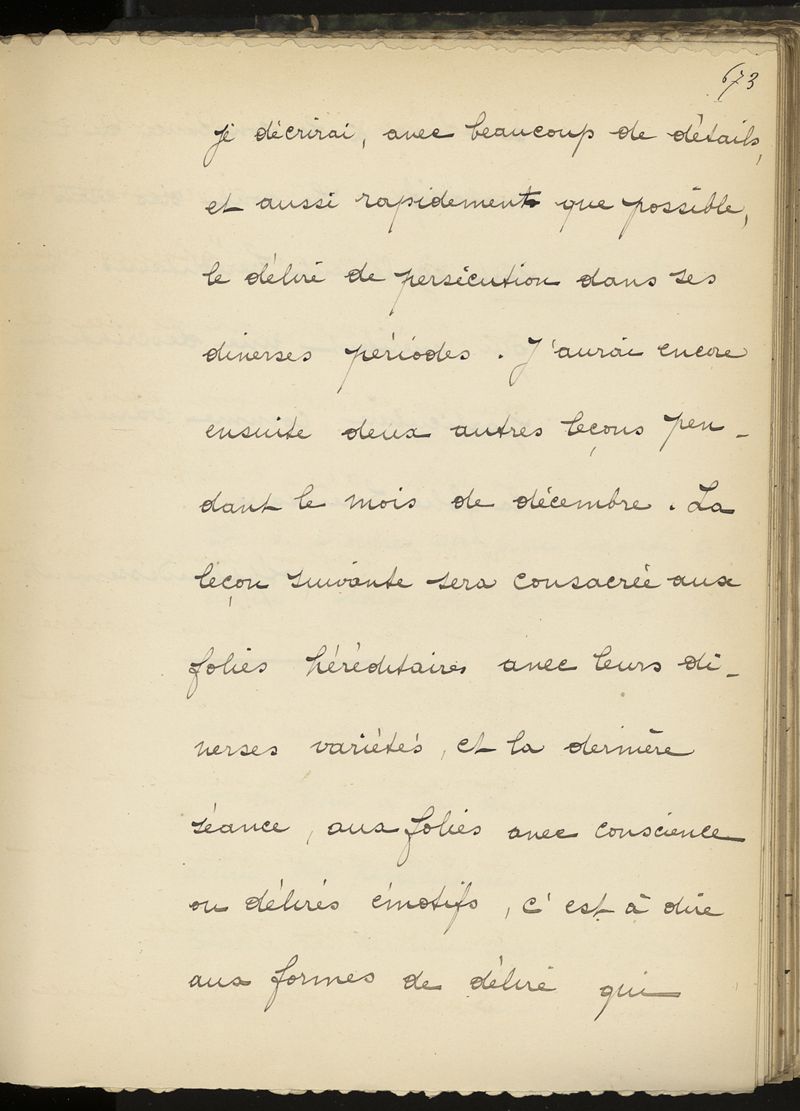 673
je décrirai, avec beaucoup de détails,
et aussi rapidement que possible,
le délire de persécution dans ses
diverses périodes. J'aurai encore
ensuite deux autres leçons pen-
dant le mois de décembre. La
leçon suivante sera consacrée aux
folies héréditaires avec leurs di-
verses variétés, et la dernière
séance, aux folies avec conscience
ou délires émotifs, c'est à dire
aux formes de délire qui